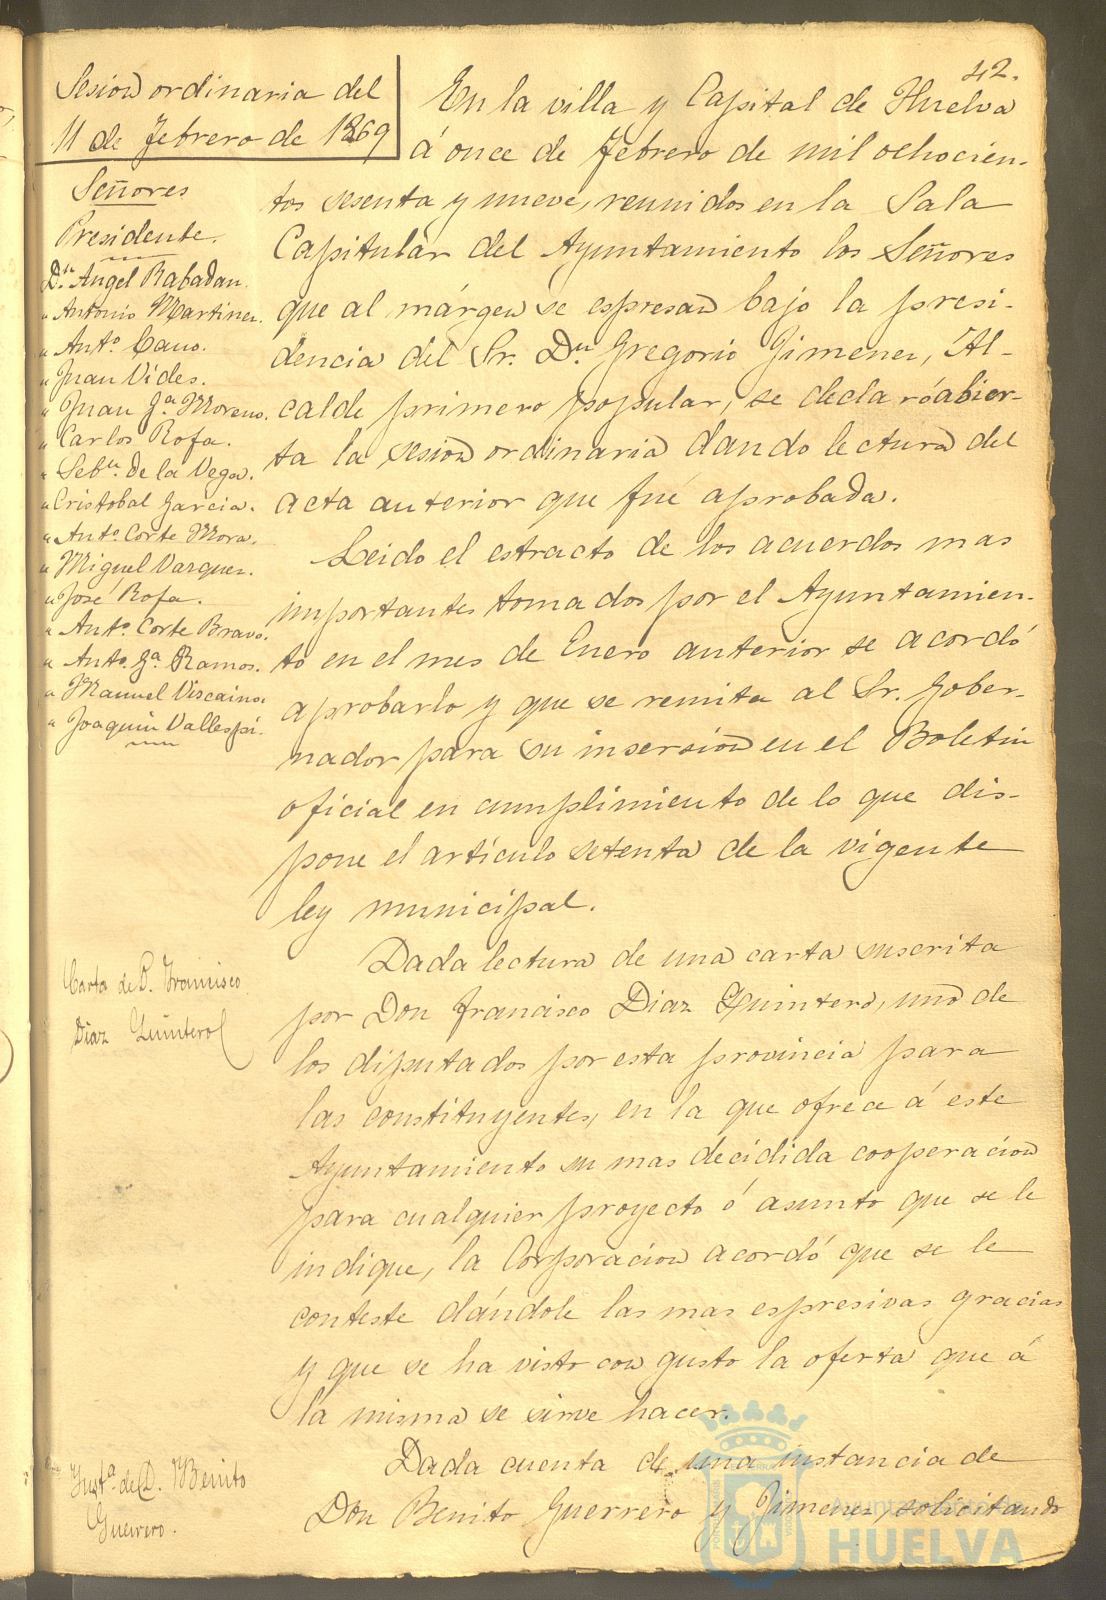 42.
Sesion ordinaria del
11 de Febrero de 1869
Señores
Presidente.
Dn Angel Rabadan.
" Antonio Martinez.
" Anto. Cano.
" Juan Vides.
" Juan Ga. Moreno.
" Carlos Rofa.
" Sebn. de la Vega.
" Cristobal Garcia.
" Anto. Corte Mora.
" Miguel Vazquez.
" José Rofa.
" Anto. Corte Bravo.
" Anto. Ga. Ramos.
" Manuel Viscaino.
" Joaquin Vallespi.
En la villa y Capital de Huelva
á once de Febrero de mil ochocien-
tos sesenta y nueve, reunidos en la Sala
Capitular del Ayuntamiento los Señores
que al márgen se espresan bajo la presi-
dencia del Sr. Dn Gregorio Jimenez, Al-
calde primero popular, se declaró abier-
ta la sesion ordinaria dando lectura del
acta anterior que fué aprobada.
Leido el estracto de los acuerdos mas
importantes tomados por el Ayuntamien-
to en el mes de Enero anterior se acordó
aprobarlo y que se remita al Sr. Gober-
nador para su insercion en el Boletin
oficial en cumplimiento de lo que dis-
pone el artículo setenta de la vigente
ley municipal.
Carta de D. Francisco
Diaz Quintero
Dada lectura de una carta suscrita
por Don Francisco Diaz Quintero, uno de
los diputados por esta provincia para
las constituyentes, en la que ofrece á este
Ayuntamiento su mas decidida cooperacion
para cualquier proyecto ó asunto que se le
indique, la Corporacion acordó que se le
conteste dándole las mas espresivas gracias
y que se ha visto con gusto la oferta que á
la misma se sirve hacer.
Insta. de D. Benito
Guerrero.
Dada cuenta de una instancia de
Don Benito Guerrero y Jimenez, solicitando
Ayuntamiento de
HUELVA